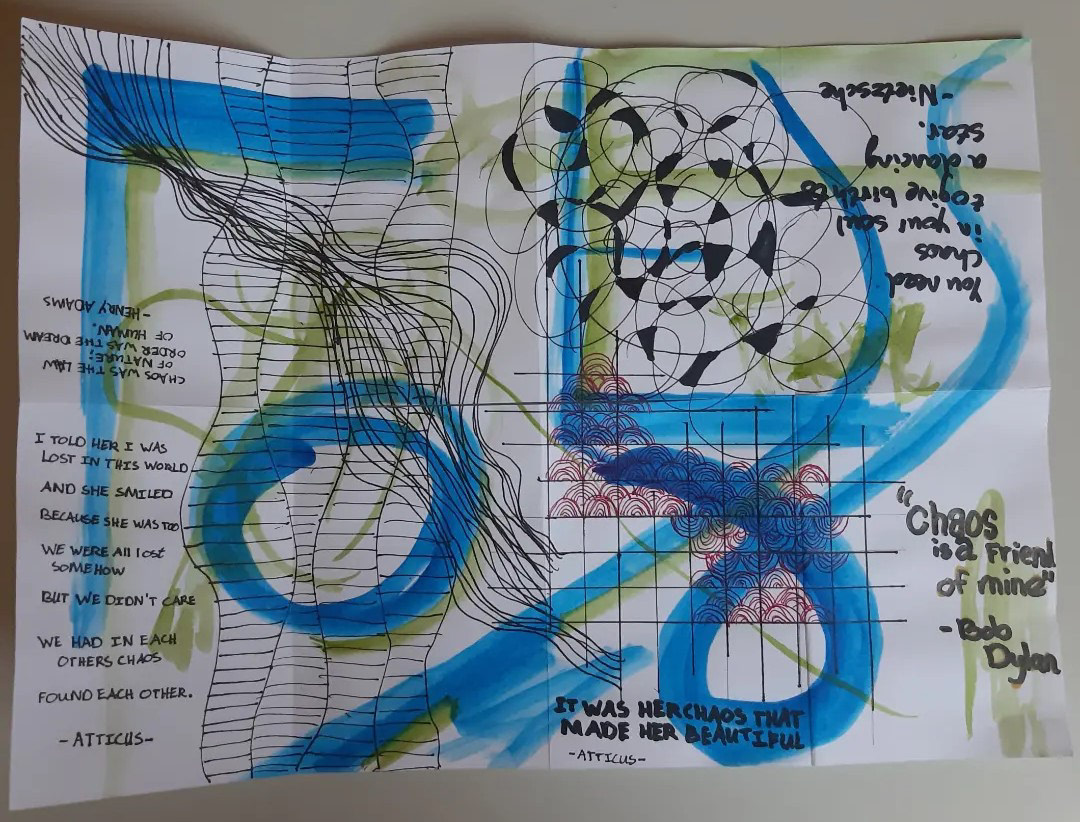 CHAOS WAS THE LAW
OF NATURE;
ORDER WAS THE DREAM
OF HUMAN.
-HENRY ADAMS
You need
chaos
in your soul
to give birth to
a dancing
star.
-Nietzsche
I TOLD HER I WAS
LOST IN THIS WORLD
AND SHE SMILED
BECAUSE SHE WAS TOO
WE WERE All lost
SOMEHOW
BUT WE DIDN'T CARE
WE HAD IN EACH
OTHERS CHAOS
FOUND EACH OTHER.
-ATTICUS-
"Chaos
is a Friend
of mine"
-Bob
Dylan
IT WAS HER CHAOS THAT
MADE HER BEAUTIFUL
-ATTICUS-